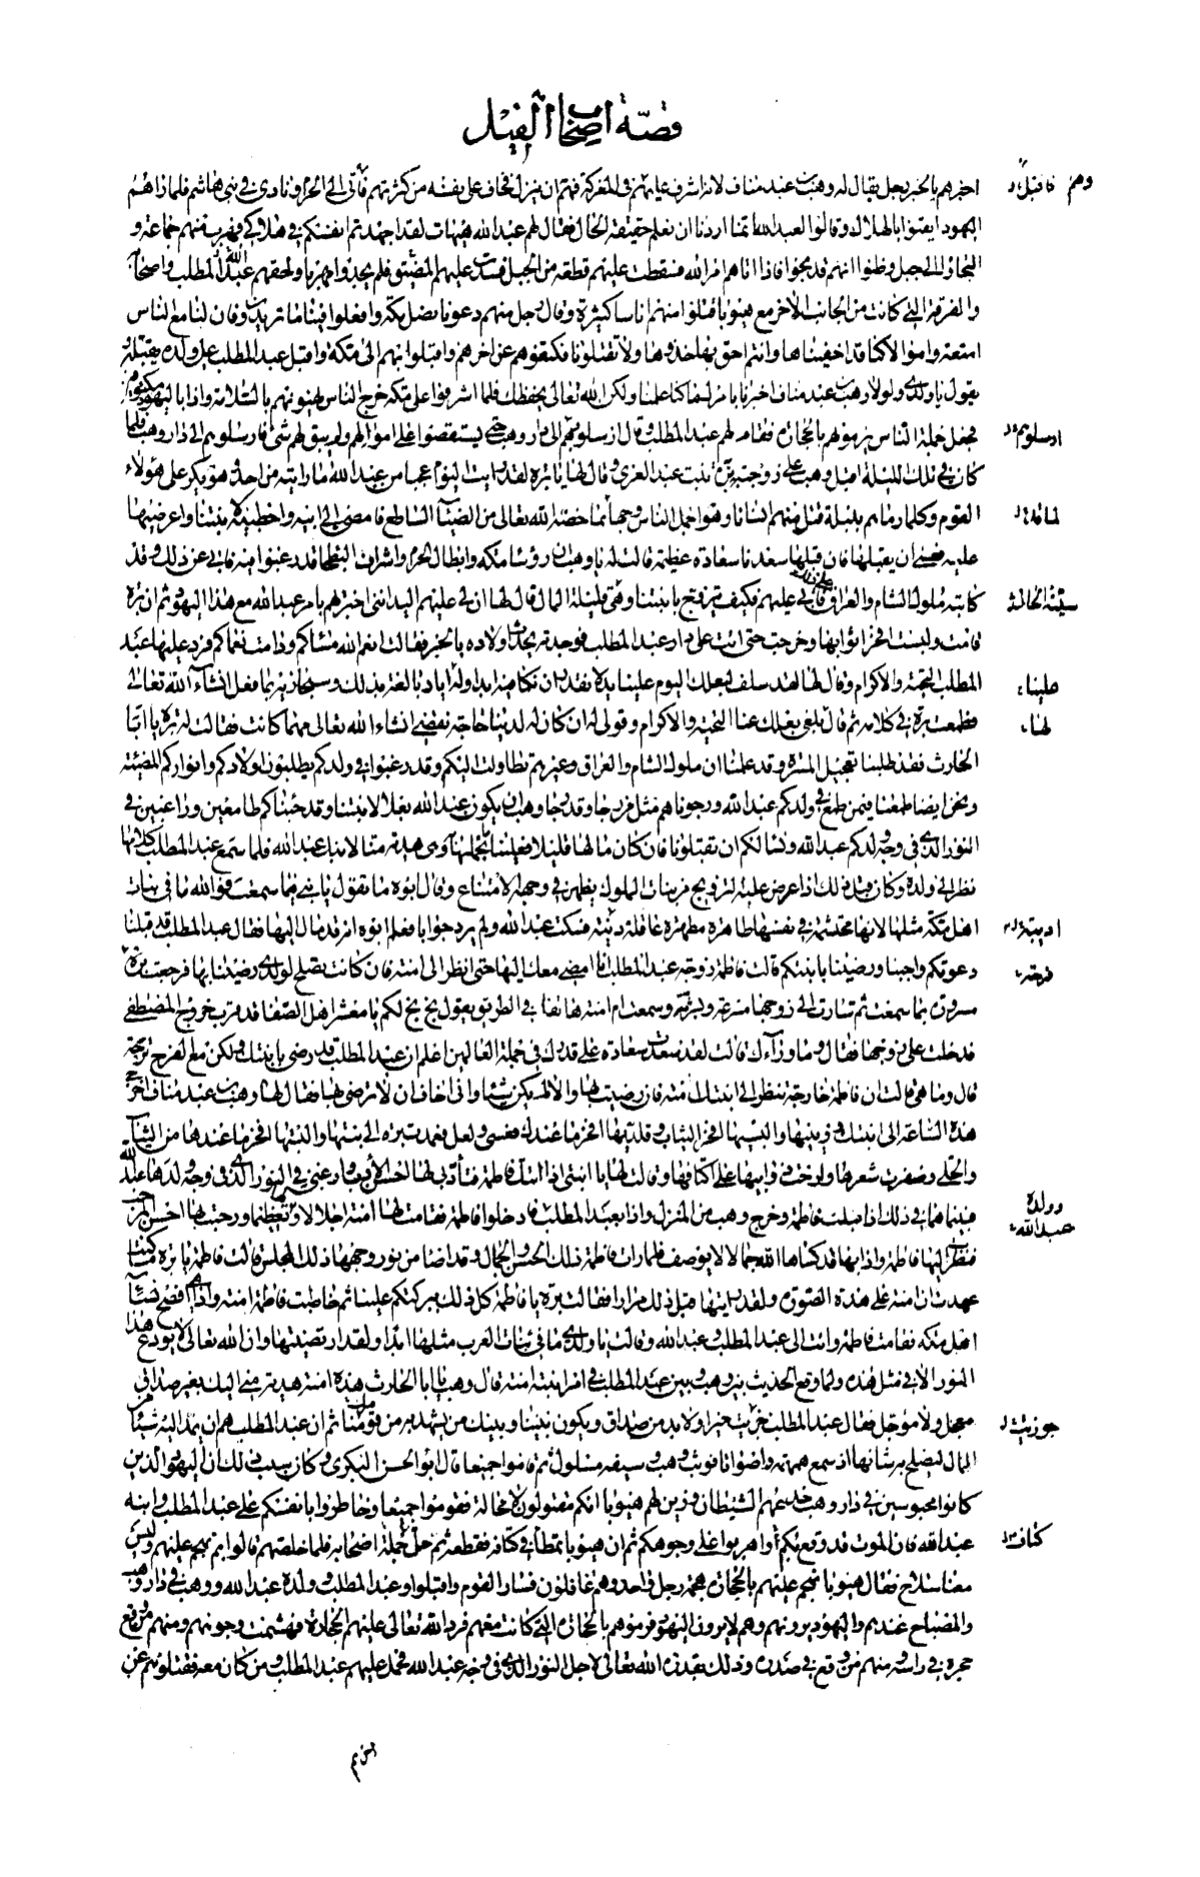 قصّة اصحاب الفيل
اخبرهم بالخبر رجل يقال له وهب بن عبد مناف لانه اشرف عليهم في المعركة فهم ان ينزل فخاف على نفسه من كثرتهم فأتى الى الحرم ونادى في بني هاشم فلما راهم
اليهود ايقنوا بالهلاك وقالوا لعبد الله انما اردنا ان نعلم حقيقة الحال فقال لهم عبد الله هيهات لقد اجهدتم انفسكم في هلاكي فهرب منهم جماعة و
التجاؤا الى جبل وظنوا انهم قد نجوا فاذا اتاهم امر الله فسقطت عليهم قطعة من الجبل فسدت عليهم المضيق فلم يجدوا مهربا ولحقهم عبد المطلب واصحابه
والفرقة التي كانت من الجانب الاخر مع هيوبا قتلوا منهم اناسا كثيرة وقال رجل منهم دعونا نصل مكة وافعلوا فينا ما تريدون فان لنا مع الناس
امتعة واموالا كنا قد اخفيناها وانتم احق بها خذوها ولا تقتلونا فكتفوهم عن اخرهم واقبلوا بهم الى مكة واقبل عبد المطلب على ولده يقبله و
يقول يا ولدي لولا وهب بن عبد مناف اخبرنا بامرك ما كنا علمنا ولكن الله تعالى يحفظك فلما اشرفوا على مكة خرج الناس يهنونهم بالسلامة واذا باليهود مكتوفين
فجعل جملة الناس يرمونهم بالحجارة فقام لهم عبد المطلب وقال ارسلوهم الى دار وهب حتى يستقصوا على اموالهم ولم يبق لهم شئ فارسلوهم الى دار وهب فلما
كان في تلك الليلة اقبل وهب على زوجته برة بنت عبد العزى وقال لها يا برة لقد رايت اليوم عجبا من عبد الله ما رايته من احد وهو يكر على هؤلاء
القوم وكلما رماهم بنبلة قتل منهم انسانا وهو اجمل الناس وجها مما خصه الله تعالى من الضيآء الساطع فامضي الى ابيه واخطبيه لابنتنا واعرضيها
عليه فعسى ان يقبلها فان قبلها سعدنا سعادة عظيمة قالت له يا وهب ان رؤساء مكة وابطال الحرم واشراف البطحا قد رغبوا فيه فابى عن ذلك وقد
كاتبه ملوك الشام والعراق على ذلك فابى عليهم فكيف يتزوج بابنتنا وهي قليلة المال قال لها ان لي عليهم اليد انني اخبرتهم بامر عبد الله مع هذا اليهود ثم ان برة
قامت ولبست افخر اثوابها وخرجت حتى اتت على دار عبد المطلب فوجدته يحدث اولاده بالخبر فقالت انعم الله مساكم ودامت نعماكم فرد عليها عبد
المطلب التحية والاكرام وقال لها لقد سلف لبعلك اليوم علينا يد لا نقدر ان نكافيه ابدا وله اياد بالغة بذلك وسنجازيه بما فعل انشاء الله تعالى
فطمعت برة في كلامه ثم قال بلغي بعلك عنا التحية والاكرام وقولي له ان كان له لدينا حاجة تقضى انشاء الله تعالى مهما كانت فقالت له برة يا ابا
الحارث قد طلبنا تعجيل المسرة وقد علمنا ان ملوك الشام والعراق وغيرهم تطاولت اليكم وقد رغبوا في ولدكم يطلبون اولادكم وانواركم المضيئة
ونحن ايضا طمعنا فيمن طمع في ولدكم عبد الله ورجوناهم مثل من رجا وقد رجا وهب ان يكون عبد الله بعلا لابنتنا وقد جئناكم طامعين وراغبين في
النور الذي في وجه ولدكم عبد الله ونسالكم ان تقبلونا فان كان مالها قليلا فعلينا ما نجملها به وهي هدية منا لابنك عبد الله فلما سمع عبد المطلب كلامها
نظر الى ولده وكان قبل ذلك اذا عرض عليه التزويج من بنات الملوك يظهر في وجهه الامتناع وقال ابوه ما تقول يا بني فيما سمعت فوالله ما في بنات
اهل مكة مثلها لانها محتشمة في نفسها طاهرة مطهرة عاقلة دينة فسكت عبد الله ولم يرد جوابا فعلم ابوه انه قد مال اليها فقال عبد المطلب قد قبلنا
دعوتكم واجبنا ورضينا بابنتكم قالت فاطمة زوجة عبد المطلب انا امضي معك اليها حتى انظر الى امنة فان كانت تصلح لولدي رضينا بها فرجعت برة
مسرورة بما سمعت ثم تبادرت الى زوجها مسرعة وبشرته وسمعت ام امنة هاتفا في الطريق يقول بخ بخ لكم يا معشر اهل الصفا قد قرب خروج المصطفى
فدخلت على زوجها فقال وما وراءك قالت لقد سعدت سعادة على قدرك في جملة العالمين اعلم ان عبد المطلب قد رضي بابنتك ولكن مع الفرح ترحة
قال وما هي قالت ان فاطمة خارجة تنظر الى ابنتك امنة فان رضيت بها والا لم يكن شيئا وانى اخاف ان لا ترضى بها فقال لها وهب بن عبد مناف اخرجي
هذه الساعة الى ابنتك وزينيها والبسيها افخر الثياب وقلديها افخر ما عندك فعسى ولعل فعمدت برة الى بنتها والبستها افخر ما عندها من الثياب
والحلي وضفرت شعرها وارخت ذوايبها على اكتافها وقالت لها يا ابنتي اذا اتتك فاطمة فتأدبي لها احسن الادب وارغبي في النور الذي في وجه ولدها عبد الله
فبينما هما في ذلك اذ اقبلت فاطمة وخرج وهب من المنزل واذا بعبد المطلب فادخلوا فاطمة فقامت لها امنة اجلالا وتعظيما ورحبت بها احسن الترحيب
فنظرت اليها فاطمة واذا بها قد كساها الله جمالا لا يوصف فلما رات فاطمة ذلك الحسن والجمال وقد اضاء من نور وجهها ذلك المجلس قالت فاطمة يا برة ما كنت
عهدت ان امنة على هذه الصورة ولقد رايتها قبل ذلك مرارا فقالت برة يا فاطمة كل ذلك ببركتكم علينا ثم خاطبت فاطمة امنة واذا هي افصح نساء
اهل مكة فقامت فاطمة واتت الى عبد المطلب وعبد الله وقالت يا ولدي ما في بنات العرب مثلها ابدا ولقد ارتضيتها وان الله تعالى لا يودع هذا
النور الا في مثل هذه ولما وقع الحديث بين وهب وبين عبد المطلب في امر ابنته امنة قال وهب يا ابا الحارث هذه امنة هدية مني اليك بغير صداق
معجل ولا مؤجل فقال عبد المطلب جزيت خيرا ولا بد من صداق ويكون بيننا وبينك من يشهد به من قومنا ثم ان عبد المطلب هم ان يمد اليه شيئا من
المال ليصلح به شانها اذ سمع همهمة واصواتا فوثب وهب وسيفه مسلول ثم قاموا جميعا قال ابو الحسن البكري وكان سبب ذلك ان اليهود الذين
كانوا محبوسين في دار وهب خدعهم الشيطان وزين لهم هيوبا انكم مقتولون لا محالة فقوموا جميعا وخاطروا بانفسكم على عبد المطلب وابنه
عبد الله فان الموت قد وقع بكم او اهربوا على وجوهكم ثم ان هيوبا تمطأ في كتافه فقطعه ثم حل جملة اصحابه فلما خلصهم قالوا بم نهجم عليهم وليس
معنا سلاح فقال هيوبا نهجم عليهم بالحجارة هجمة رجل واحد وهم غافلون فسار القوم واقبلوا وعبد المطلب وولده عبد الله ووهب في دار وهب
والمصباح عندهم واليهود يرونهم وهم لا يرون اليهود فرموهم بالحجارة التي كانت معهم فرد الله تعالى عليهم الحجارة فهشمت وجوههم ومنهم من وقع
حجره في راسه ومنهم من وقع في صدره وذلك بقدرة الله تعالى لاجل النور الذي في وجه عبد الله فحمل عليهم عبد المطلب ومن كان معه فقتلوهم عن
وهم
ارسلوهم
علينا
لها
وولده
عبد الله
جوزيت
كتافه